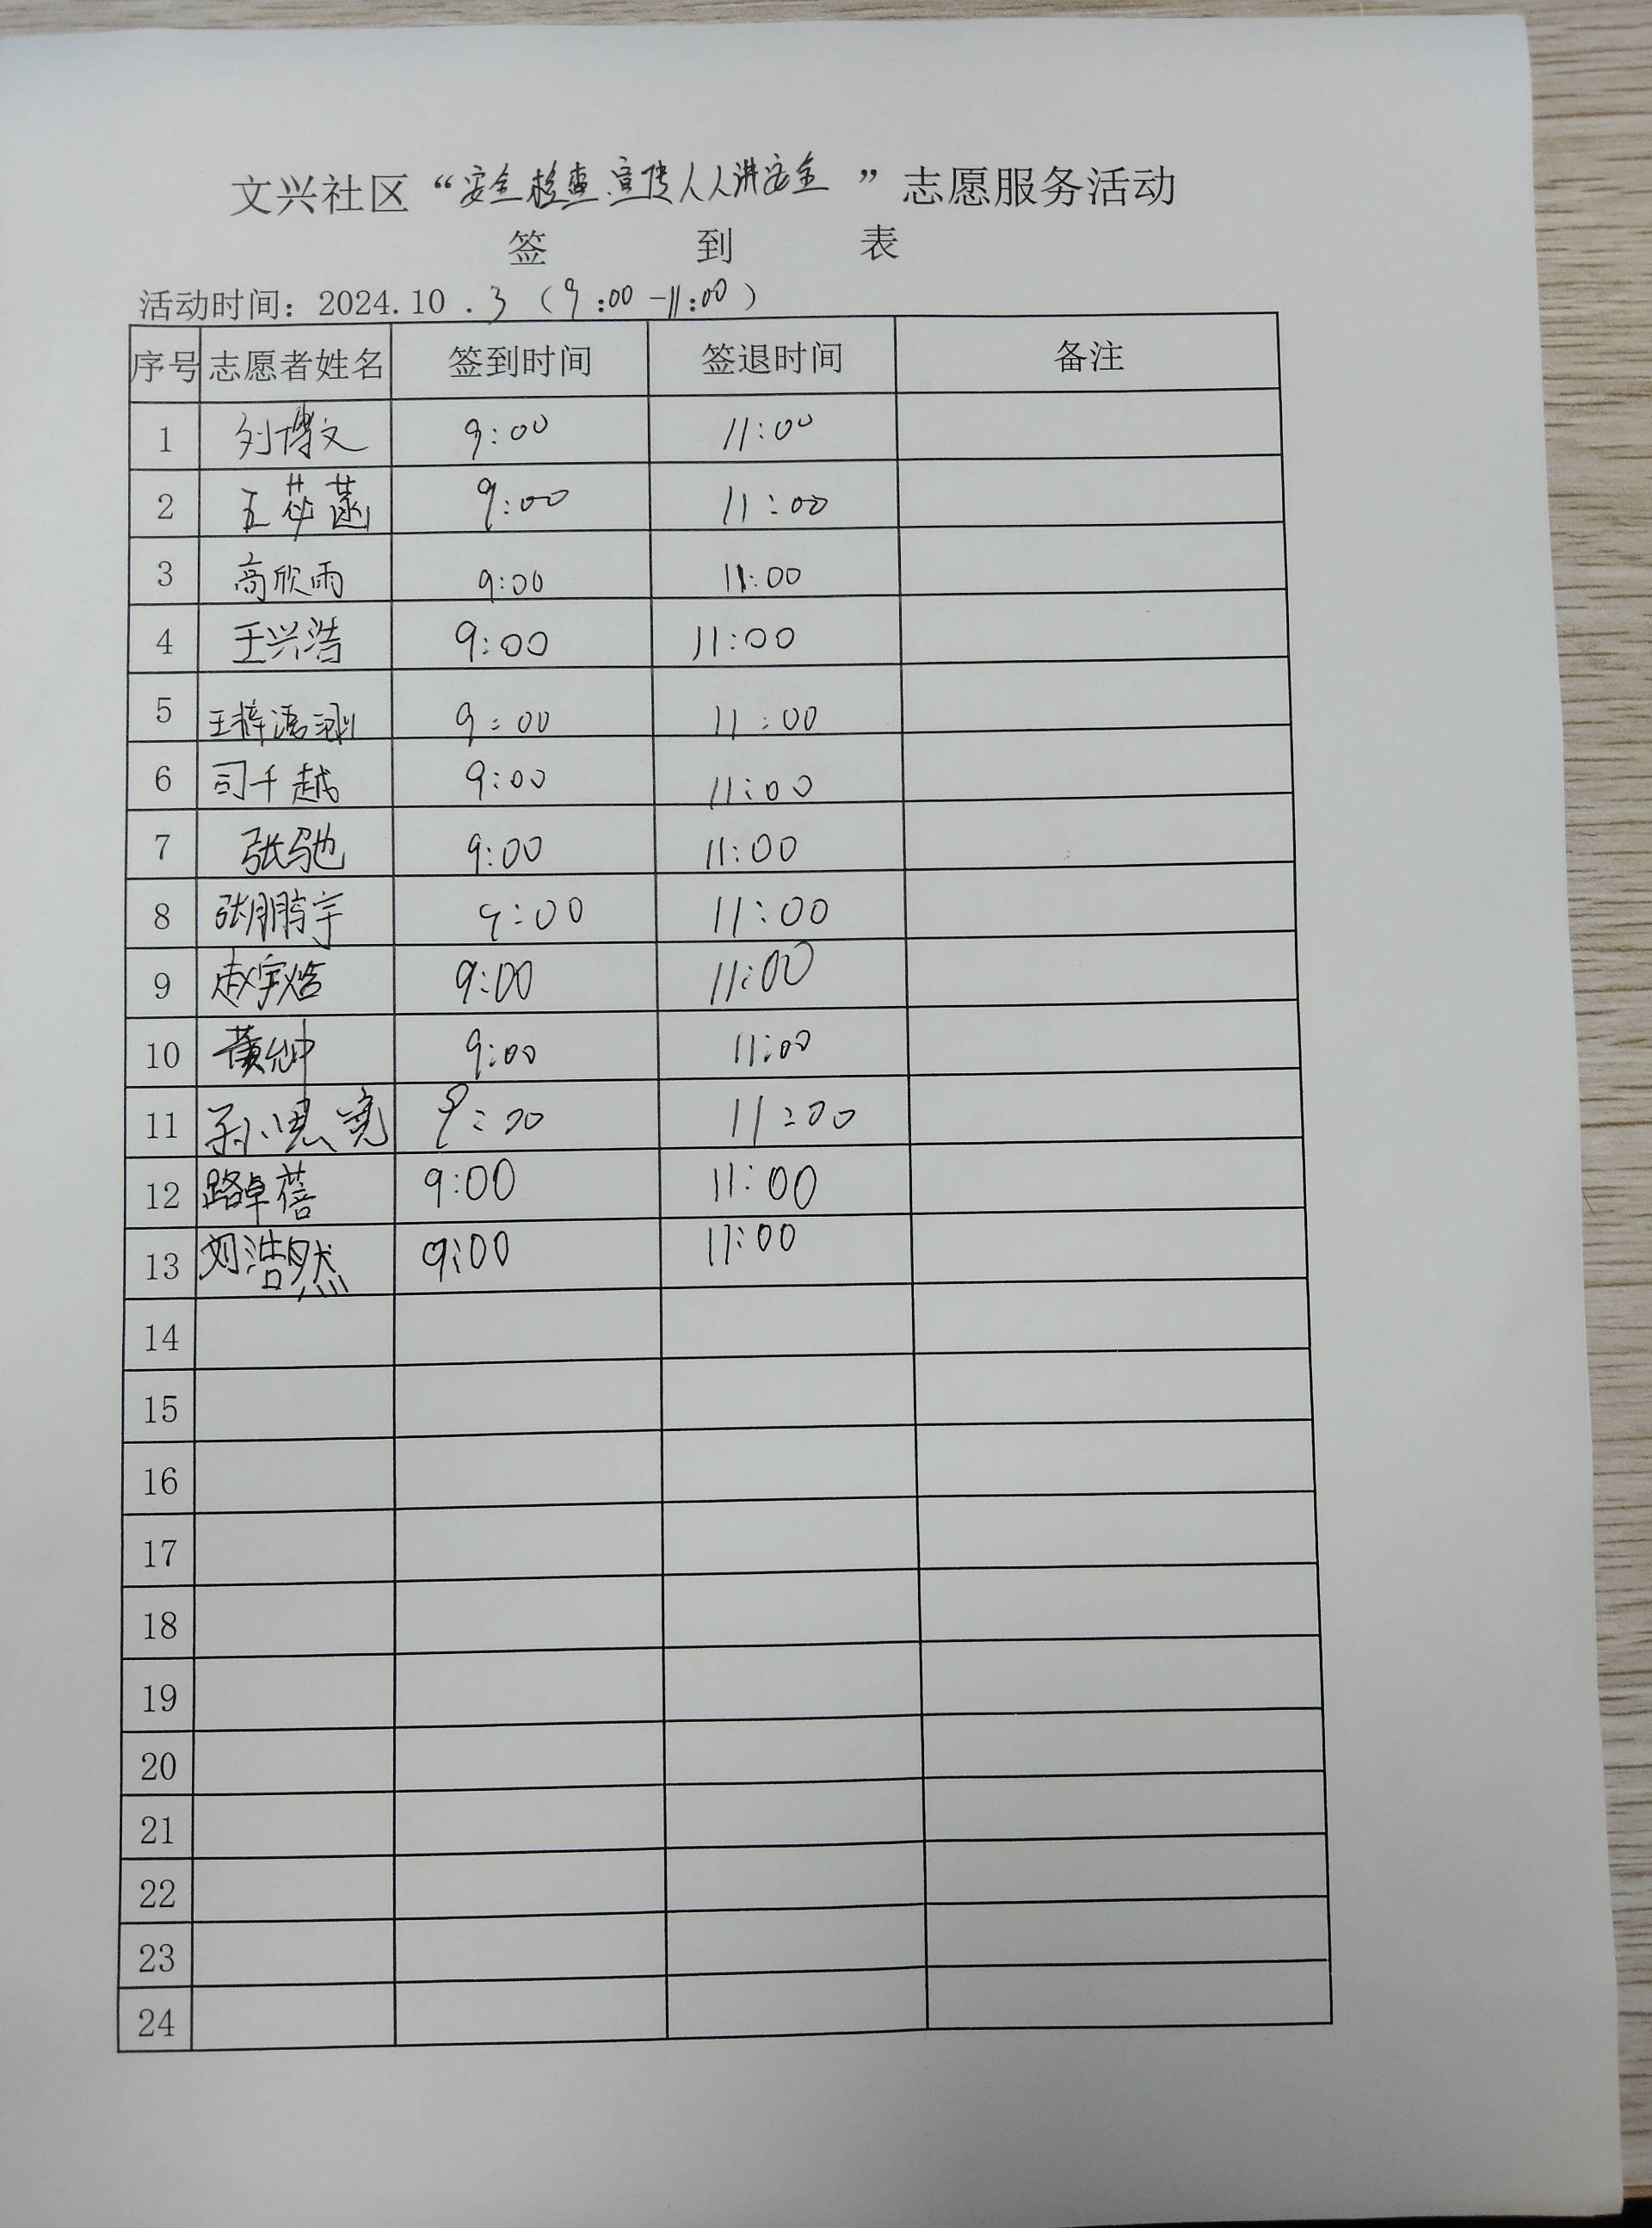 文兴社区“安全检查、宣传人人讲安全”志愿服务活动
签 到 表
活动时间：2024.10.3（9:00-11:00）
序号 志愿者姓名 签到时间 签退时间 备注
1 刘博文 9:00 11:00
2 王苾菡 9:00 11:00
3 高欣雨 9:00 11:00
4 王兴浩 9:00 11:00
5 王梓 9:00 11:00
6 司千越 9:00 11:00
7 张驰 9:00 11:00
8 张鹏宇 9:00 11:00
9 赵宇焅 9:00 11:00
10 9:00 11:00
11 孙思宽 9:00 11:00
12 路卓蓓 9:00 11:00
13 刘浩然 9:00 11:00
14
15
16
17
18
19
20
21
22
23
24